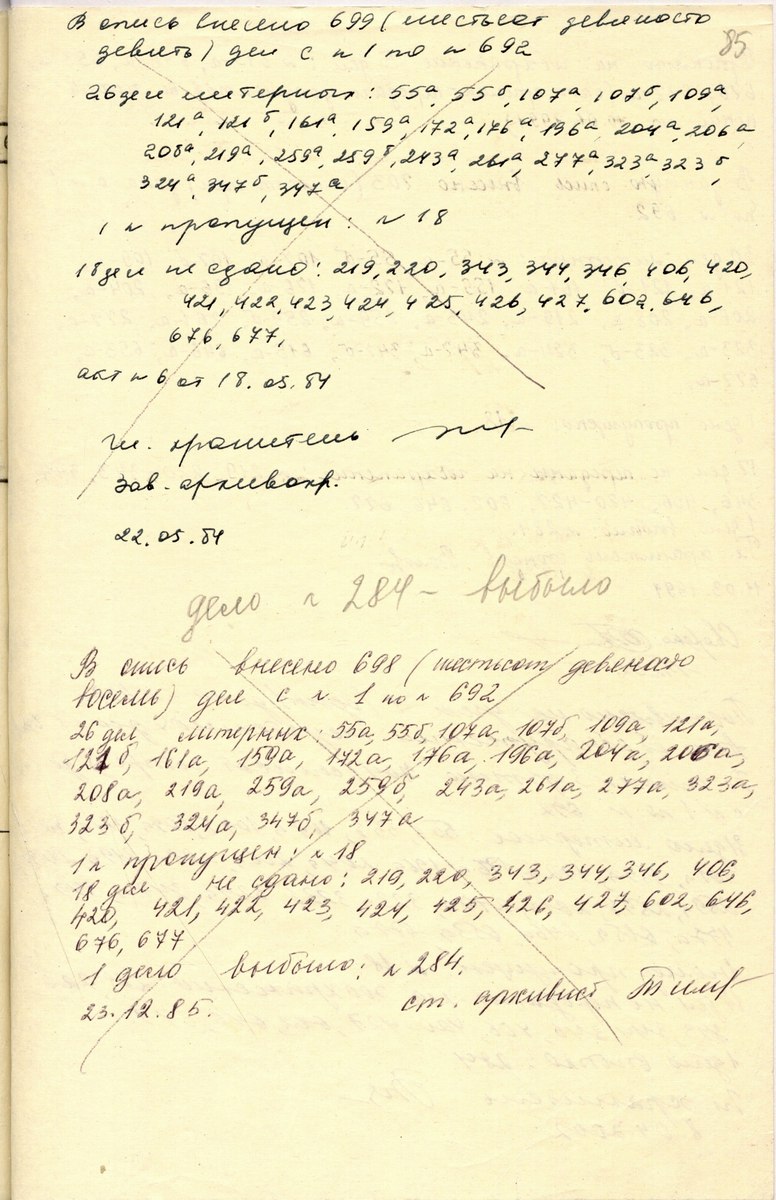 85
В опись внесено 699 (шестьсот девяносто
девять) дел с н 1 по н 692
26 дел литерных: 55а, 55б, 107а, 107б, 109а,
121а, 121б, 161а, 159а, 172а, 176а, 196а, 204а, 206а,
208а, 219а, 259а, 259б, 243а, 261а, 277а, 323а, 323б,
324а, 347б, 347а
1 н пропущен: н 18
18 дел не сдано: 219, 220, 343, 344, 346, 406, 420,
421, 422, 423, 424, 425, 426, 427, 602, 646,
676, 677,
акт н 6 от 18.05.84
Гл. хранитель
Зав. архивохр.
22.05.84
дело н 284 - выбыло
В опись внесено 698 (шестьсот девяносто
восемь) дел с н 1 по н 692
26 дел литерных: 55а, 55б, 107а, 107б, 109а, 121а,
121б, 161а, 159а, 172а, 176а, 196а, 204а, 206а,
208а, 219а, 259а, 259б, 243а, 261а, 277а, 323а,
323б, 324а, 347б, 347а
1 н пропущен: н 18
18 дел не сдано: 219, 220, 343, 344, 346, 406,
420, 421, 422, 423, 424, 425, 426, 427, 602, 646,
676, 677
1 дело выбыло: н 284.
23.12.85. ст. архивист